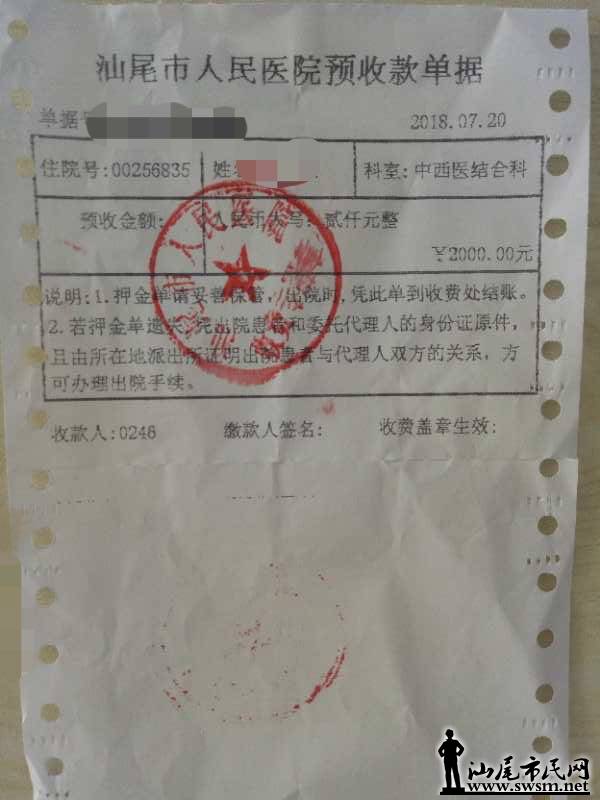 汕尾市人民医院预收款单据
单据
2018.07.20
住院号:00256835 姓名 科室:中西医结合科
预收金额: 人民币大写: 贰仟元整
¥2000.00元
说明:1.押金单请妥善保管,出院时,凭此单到收费处结账。
2.若押金单遗失,凭出院患者和委托代理人的身份证原件,
且由所在地派出所证明出院患者与代理人双方的关系,方
可办理出院手续。
收款人:0246 缴款人签名: 收费盖章生效:
市人民医院
汕尾市民网
www.swsm.net